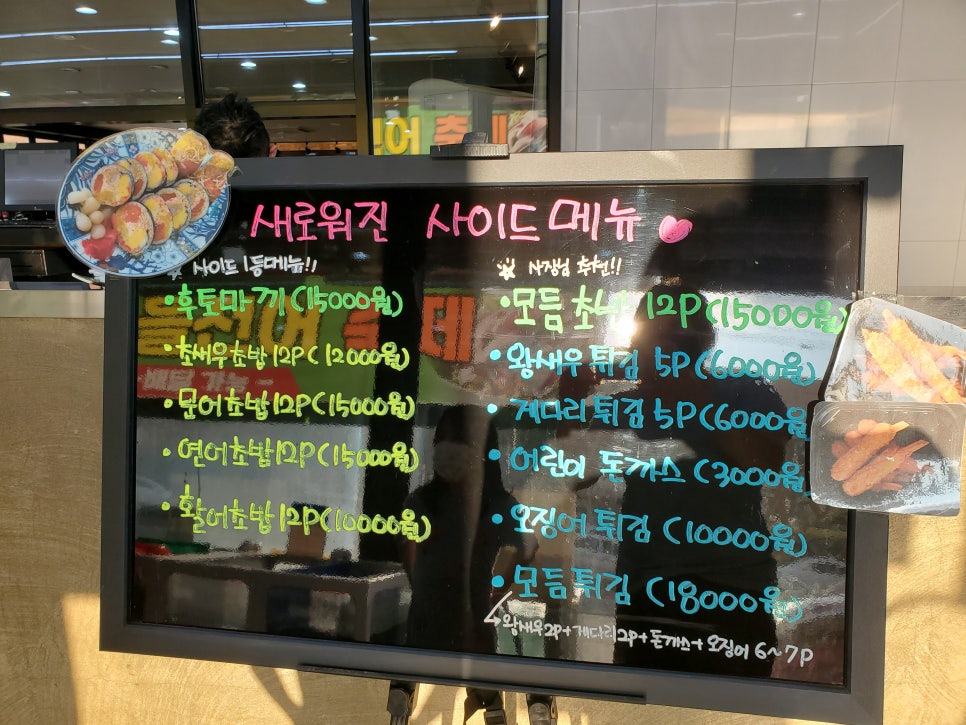 새로워진 사이드 메뉴
사이드 1등메뉴!!
• 후토마끼 (15000원)
• 초새우초밥 12P (12000원)
• 문어초밥 12P (15000원)
• 연어초밥 12P (15000원)
• 활어초밥 12P (10000원)
사장님 추천!!
• 모듬 초 12P (15000원)
• 왕새우 튀김 5P (6000원)
• 게다리 튀김 5P (6000원)
• 어린이 돈까스 (3000원)
• 오징어 튀김 (10000원)
• 모듬튀김 (18000원)
왕새우2P+게다리2P+돈까스+오징어 6~7P